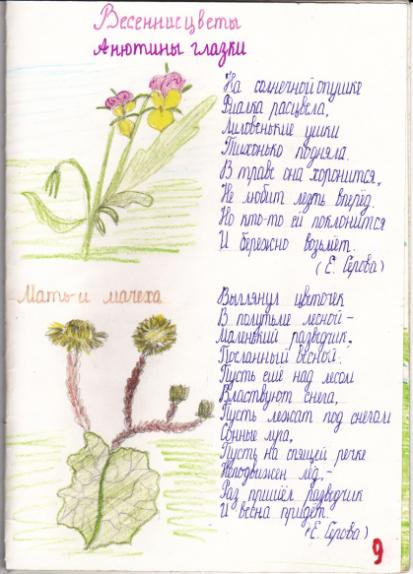 Весенние цветы
Анютины глазки
На солнечной опушке
Фиалка расцвела,
Лиловенькие ушки
Тихонько подняла.
В траве она хоронится,
Не любит лезть вперёд.
Но кто-то ей поклонится
И бережно возьмёт.
(Е. Серова)
Мать-и мачеха
Выглянул цветочек
В полутьме лесной -
Маленький разведчик,
Посланный весной.
Пусть ещё над лесом
Властвуют снега,
Пусть лежат под снегом
Сонные луга,
Пусть на спящей речке
Неподвижен лёд, -
Раз пришёл разведчик
И весна придёт.
(Е. Серова)
9